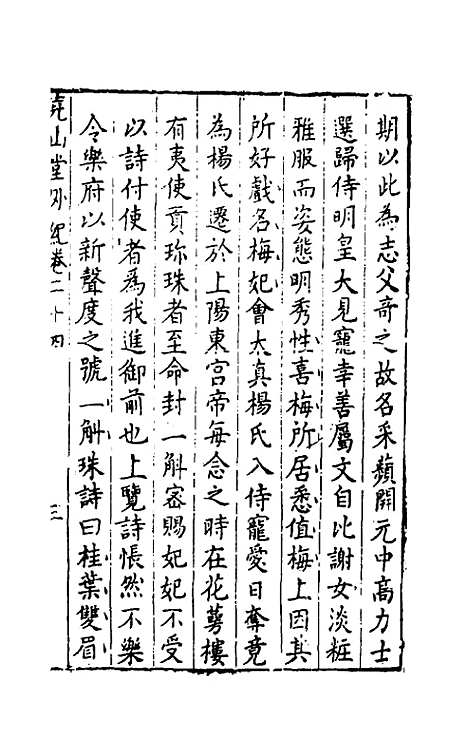 期以此為志父奇之故名采蘋開元中高力士
選歸侍明皇大見寵幸善屬文自比謝女淡粧
雅服而姿態明秀性喜梅所居悉值梅上因其
所好戲名梅妃會太真楊氏入侍寵愛日奪竟
為楊氏遷於上陽東宮帝每念之時在花萼樓
有夷使貢珎珠者至命封一斛密賜妃妃不受
以詩付使者爲我進御前也上覽詩悵然不樂
令樂府以新聲度之號一斛珠詩曰桂葉雙眉
堯山堂外紀卷二十四
三